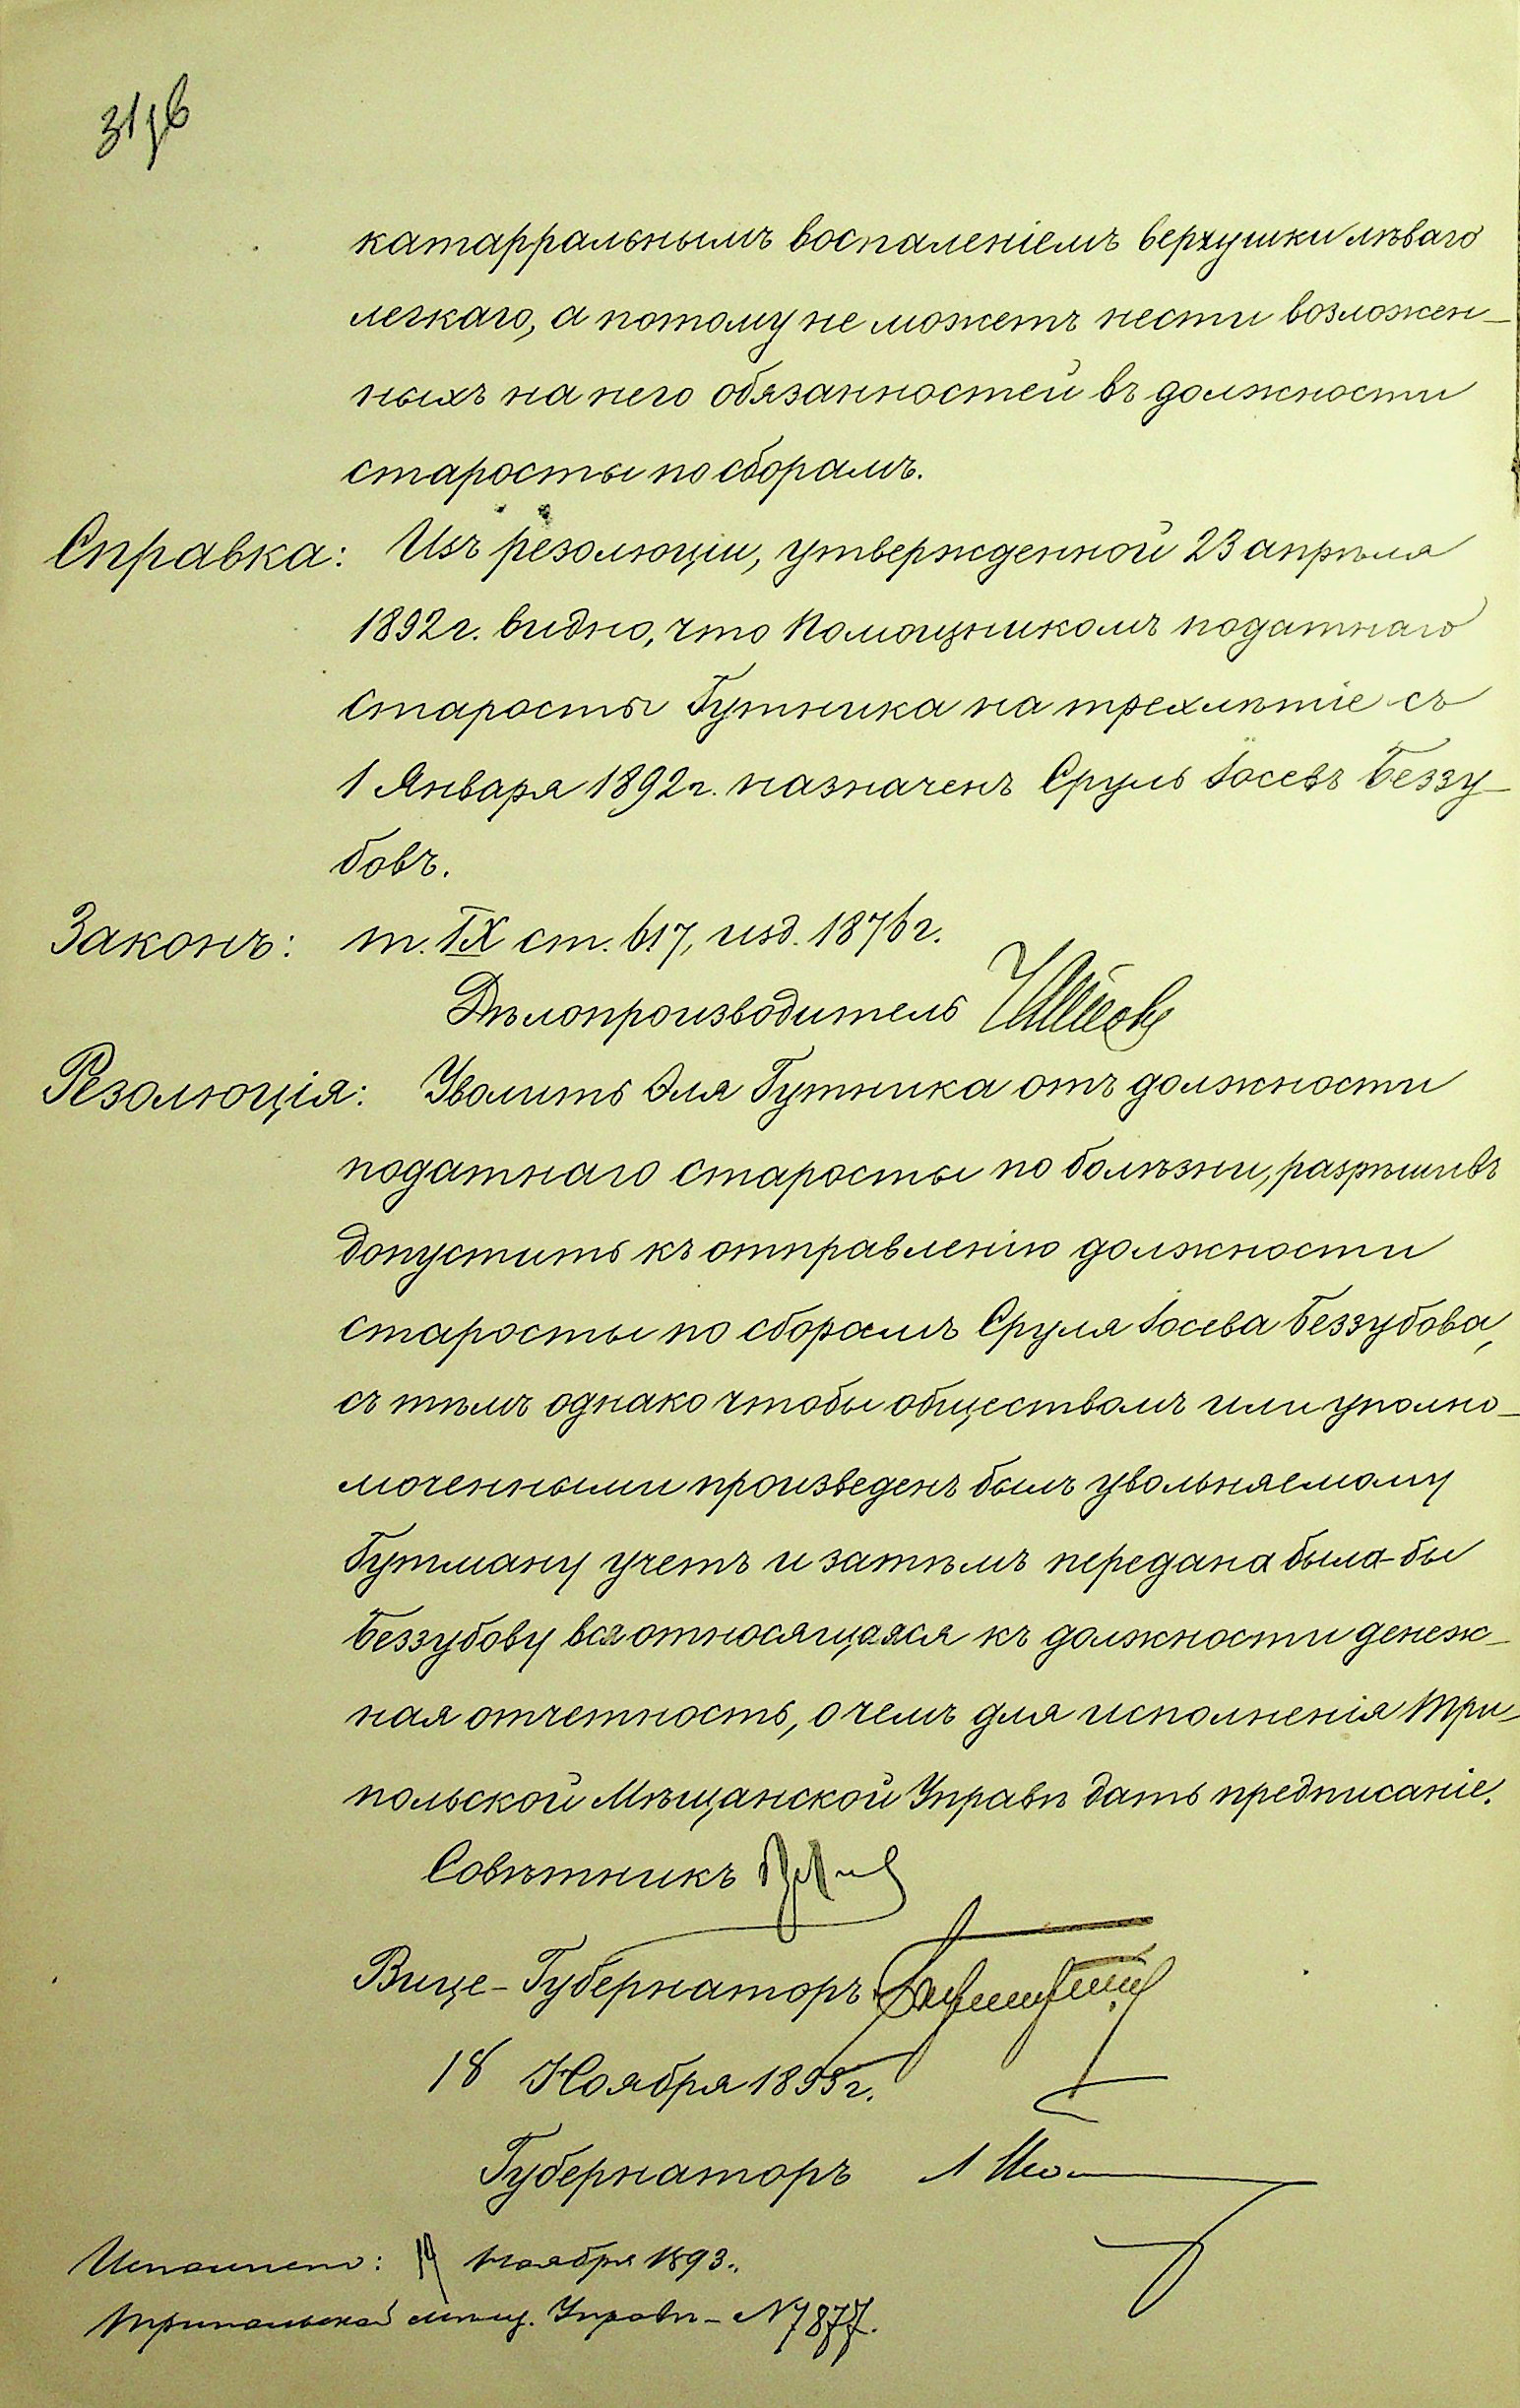 катарральнымъ воспаленіемъ верхушки лѣваго
легкаго, а потому не можетъ нести возложен-
ныхъ на него обязанностей въ должности
старосты по сборамъ.
Справка: Изъ резолюціи, утвержденной 23 апрѣля
1892 г. видно, что Помощникомъ податнаго
старосты Гутника на трехлѣтіе съ
1 Января 1892 г. назначенъ Сруль Іосевъ Беззу-
бовъ.
Законъ: т. IX ст. 617, изд. 1876 г.
Дѣлопроизводитель
Резолюція: Уволить Эля Гутника отъ должности
податнаго старосты по болѣзни, разрѣшивъ
допустить къ отправленію должности
старосты по сборамъ Сруля Іосева Беззубова,
съ тѣмъ однако чтобы обществомъ или уполно-
моченными произведенъ былъ увольняемому
Гутману учетъ и затѣмъ передана была-бы
Беззубову вся относящаяся къ должности денеж-
ная отчетность, о чемъ для исполненія Три-
польской Мѣщанской Управѣ дать предписаніе.
Совѣтникъ
Вице-Губернаторъ
18 Ноября 1893 г.
Губернаторъ
Исполнено: 19 Ноября 1893.
Трипольской мѣщ. Управѣ - № 7877.